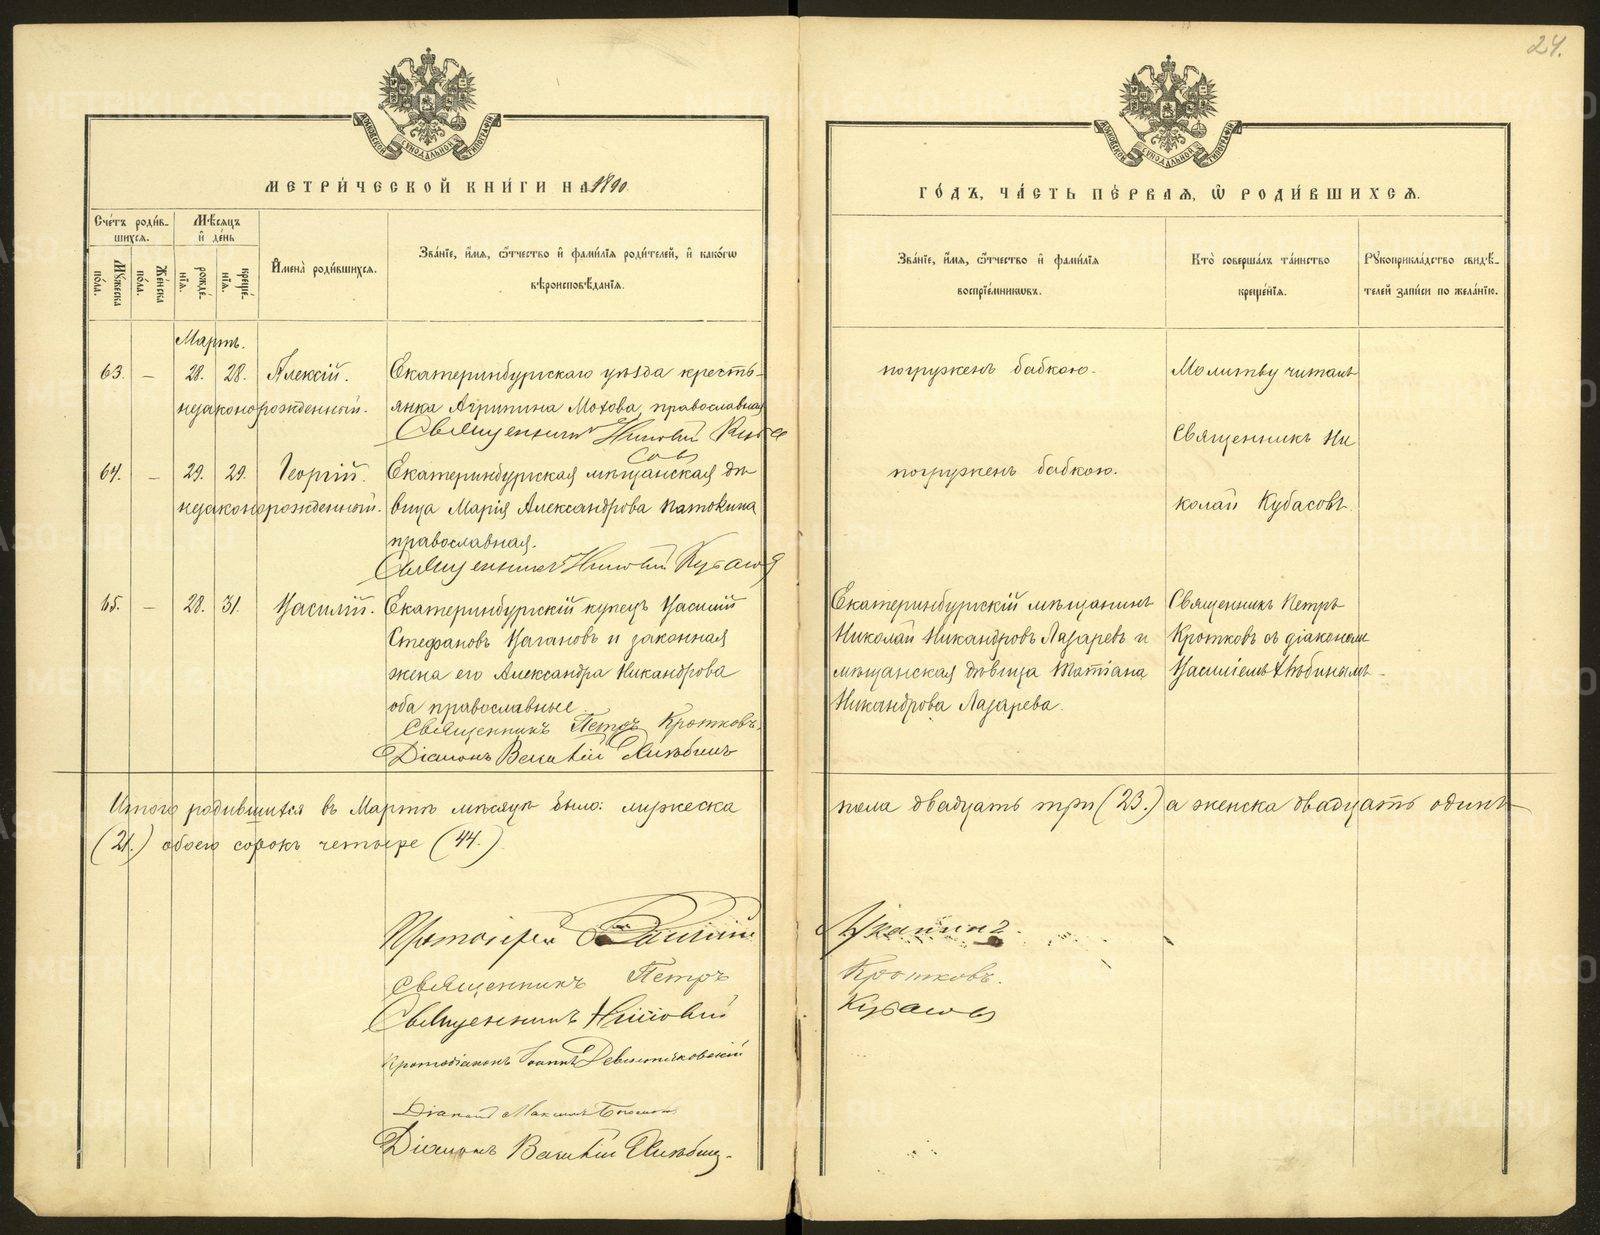 24.
МЕТРИ́ЧЕСКОЙ КНИ́ГИ НА 1890
ГО́ДЪ, ЧА́СТЬ ПЕ́РВАЯ, Ѡ РОДИ́ВШИХСЯ.
Сче́тъ роди́вшихся.
Му́жеска по́ла.
Же́нска по́ла.
Мѣ́сяцъ и҆ де́нь
рожде́нїя.
креще́нїя.
И҆мена̀ роди́вшихся.
Зва́нїе, и҆́мя, ѻ҆́тчество и҆ фами́лїя роди́телей, и҆ како́гѡ
вѣроисповѣ́данїя.
Зва́нїе, и҆́мя, ѻ҆́тчество и҆ фами́лїя
воспрїе́мникѡвъ.
Кто̀ соверша́лъ та́инство
креще́нїя.
Рꙋкоприкла́дство свидѣ́-
телей за́писи по жела́нїю.
Мартъ.
63. — 28. 28. Алексій. Екатеринбургскаго уѣзда кресть-
незаконорожденный. янка Агрипина Мохова, православная
Священникъ Николай Кубасовъ
погруженъ бабкою.
Молитву читалъ
Священникъ Ни
колай Кубасовъ.
64. — 29. 29. Георгій. Екатеринбургская мѣщанская дѣ-
незаконорожденный. вица Марія Александрова Патокина
православная.
Священникъ Николай Кубасовъ
погруженъ бабкою.
65. — 28. 31. Василій. Екатеринбургскій купецъ Василій
Стефановъ Вагановъ и законная
жена его Александра Никандрова
оба православные.
Священникъ Петръ Кротковъ.
Діаконъ Василій Хлѣбинъ
Екатеринбургскій мѣщанинъ
Николай Никандровъ Лазаревъ и
мѣщанская дѣвица Татіана
Никандрова Лазарева.
Священникъ Петръ
Кротковъ съ діакономъ
Василіемъ Хлѣбинымъ.
Итого родившихся въ Мартѣ мѣсяцѣ было: мужеска пола двадцать три (23.) а женска двадцать одинъ
(21.) обоего сорокъ четыре (44.)
Протоіерей
Священникъ Петръ Кротковъ.
Священникъ Николай Кубасовъ
Протодіаконъ Іоаннъ
Діаконъ Максимъ
Діаконъ Василій Хлѣбинъ
METRIKI.GASO-URAL.RU